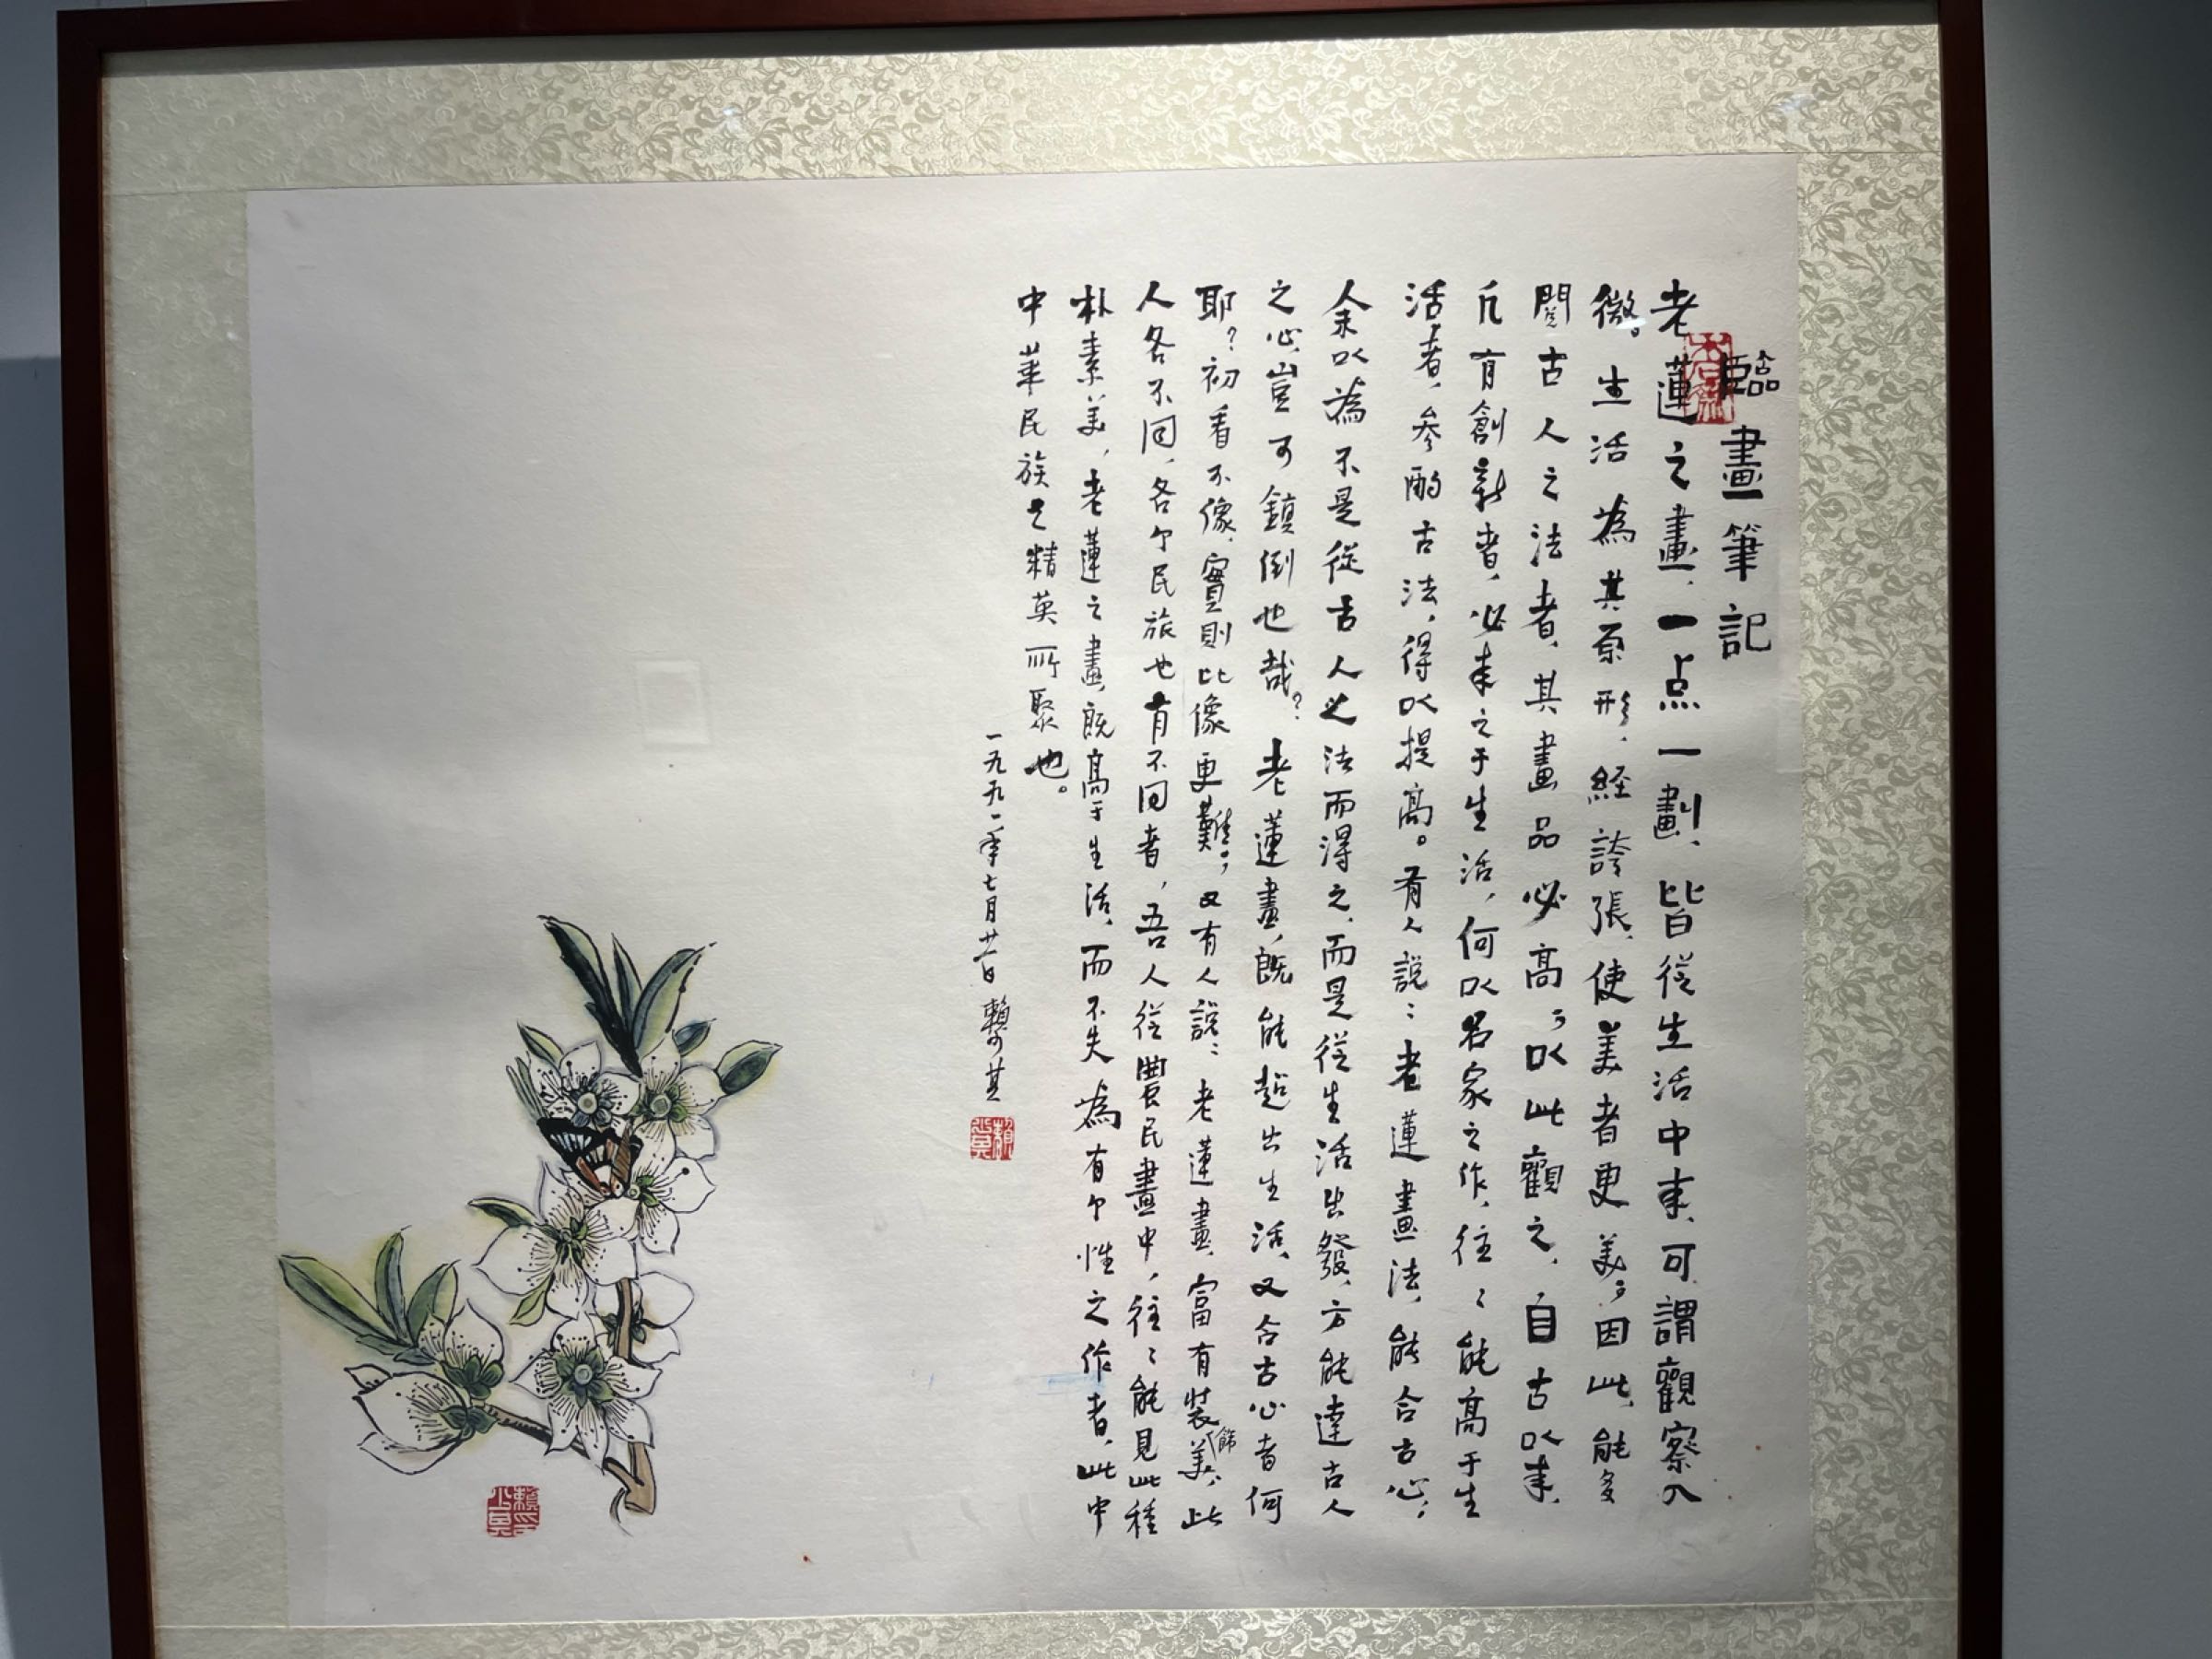 臨畫筆記
老蓮之畫、一点一劃、皆從生活中来、可謂觀察入
微。生活為其原形、經誇張、使美者更美；因此、能多
閱古人之法者、其畫品必高；以此觀之、自古以来、
凡有創新者、必来之于生活、何以名家之作、往〻能高于生
活者、參酌古法、得以提高。有人說：老蓮畫法、能合古心，
余以為不是從古人之法而得之、而是從生活出發、方能達古人
之心、豈可鎮倒也哉？老蓮畫、既能超出生活、又合古心者何
耶？初看不像、實則比像更難；又有人說：老蓮畫、富有裝飾美；此
人各不同、各个民族也有不同者，吾人從農民畫中，往〻能見此種
朴素美，老蓮之畫、既高于生活、而不失為有个性之作者、此中
中華民族之精英所聚也。
一九九二年七月廿日 賴少其